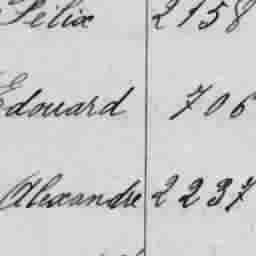 Félix 2158
Edouard 706
Alexandre 2237